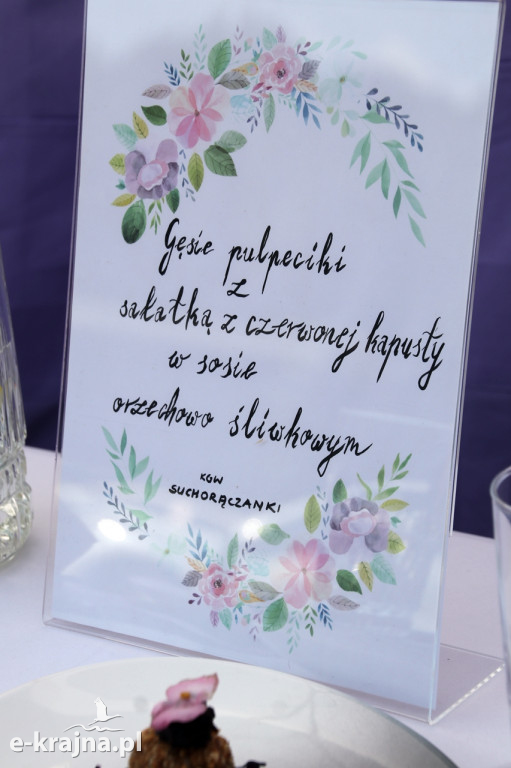 Gęsie pulpeciki
z
sałatką z czerwonej kapusty
w sosie
orzechowo śliwkowym
KGW
SUCHORĄCZANKI
e-krajna.pl